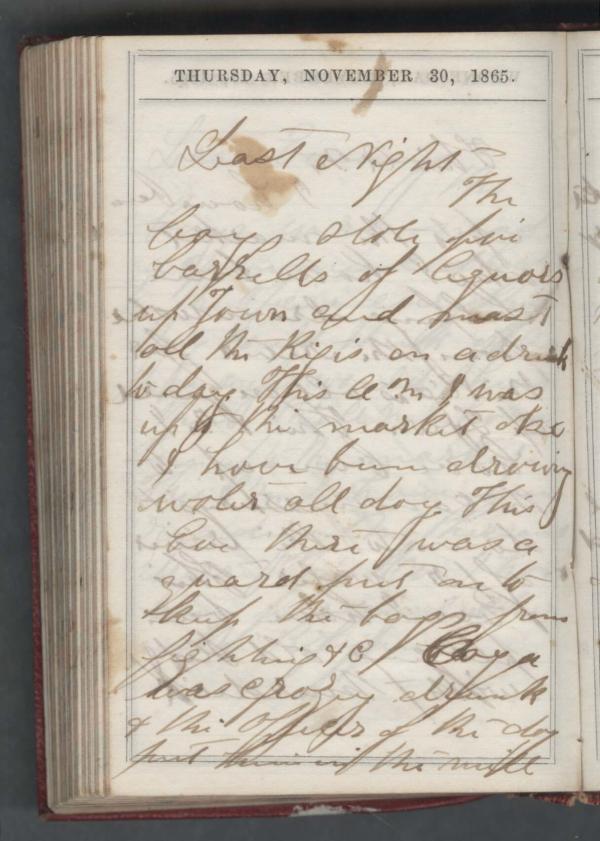 THURSDAY, NOVEMBER 30, 1865.
Last Night
The
boys stole five
barrells of liquors
up Town and most
all the Regis on a drunk
to day This A M I was
up to the market also
I have been drawing
water all day This
Eve there was a
guard put on to
keep the boys from
fighting & C Boys
was crazy drunk
& the Officer of the day
put them in the mill